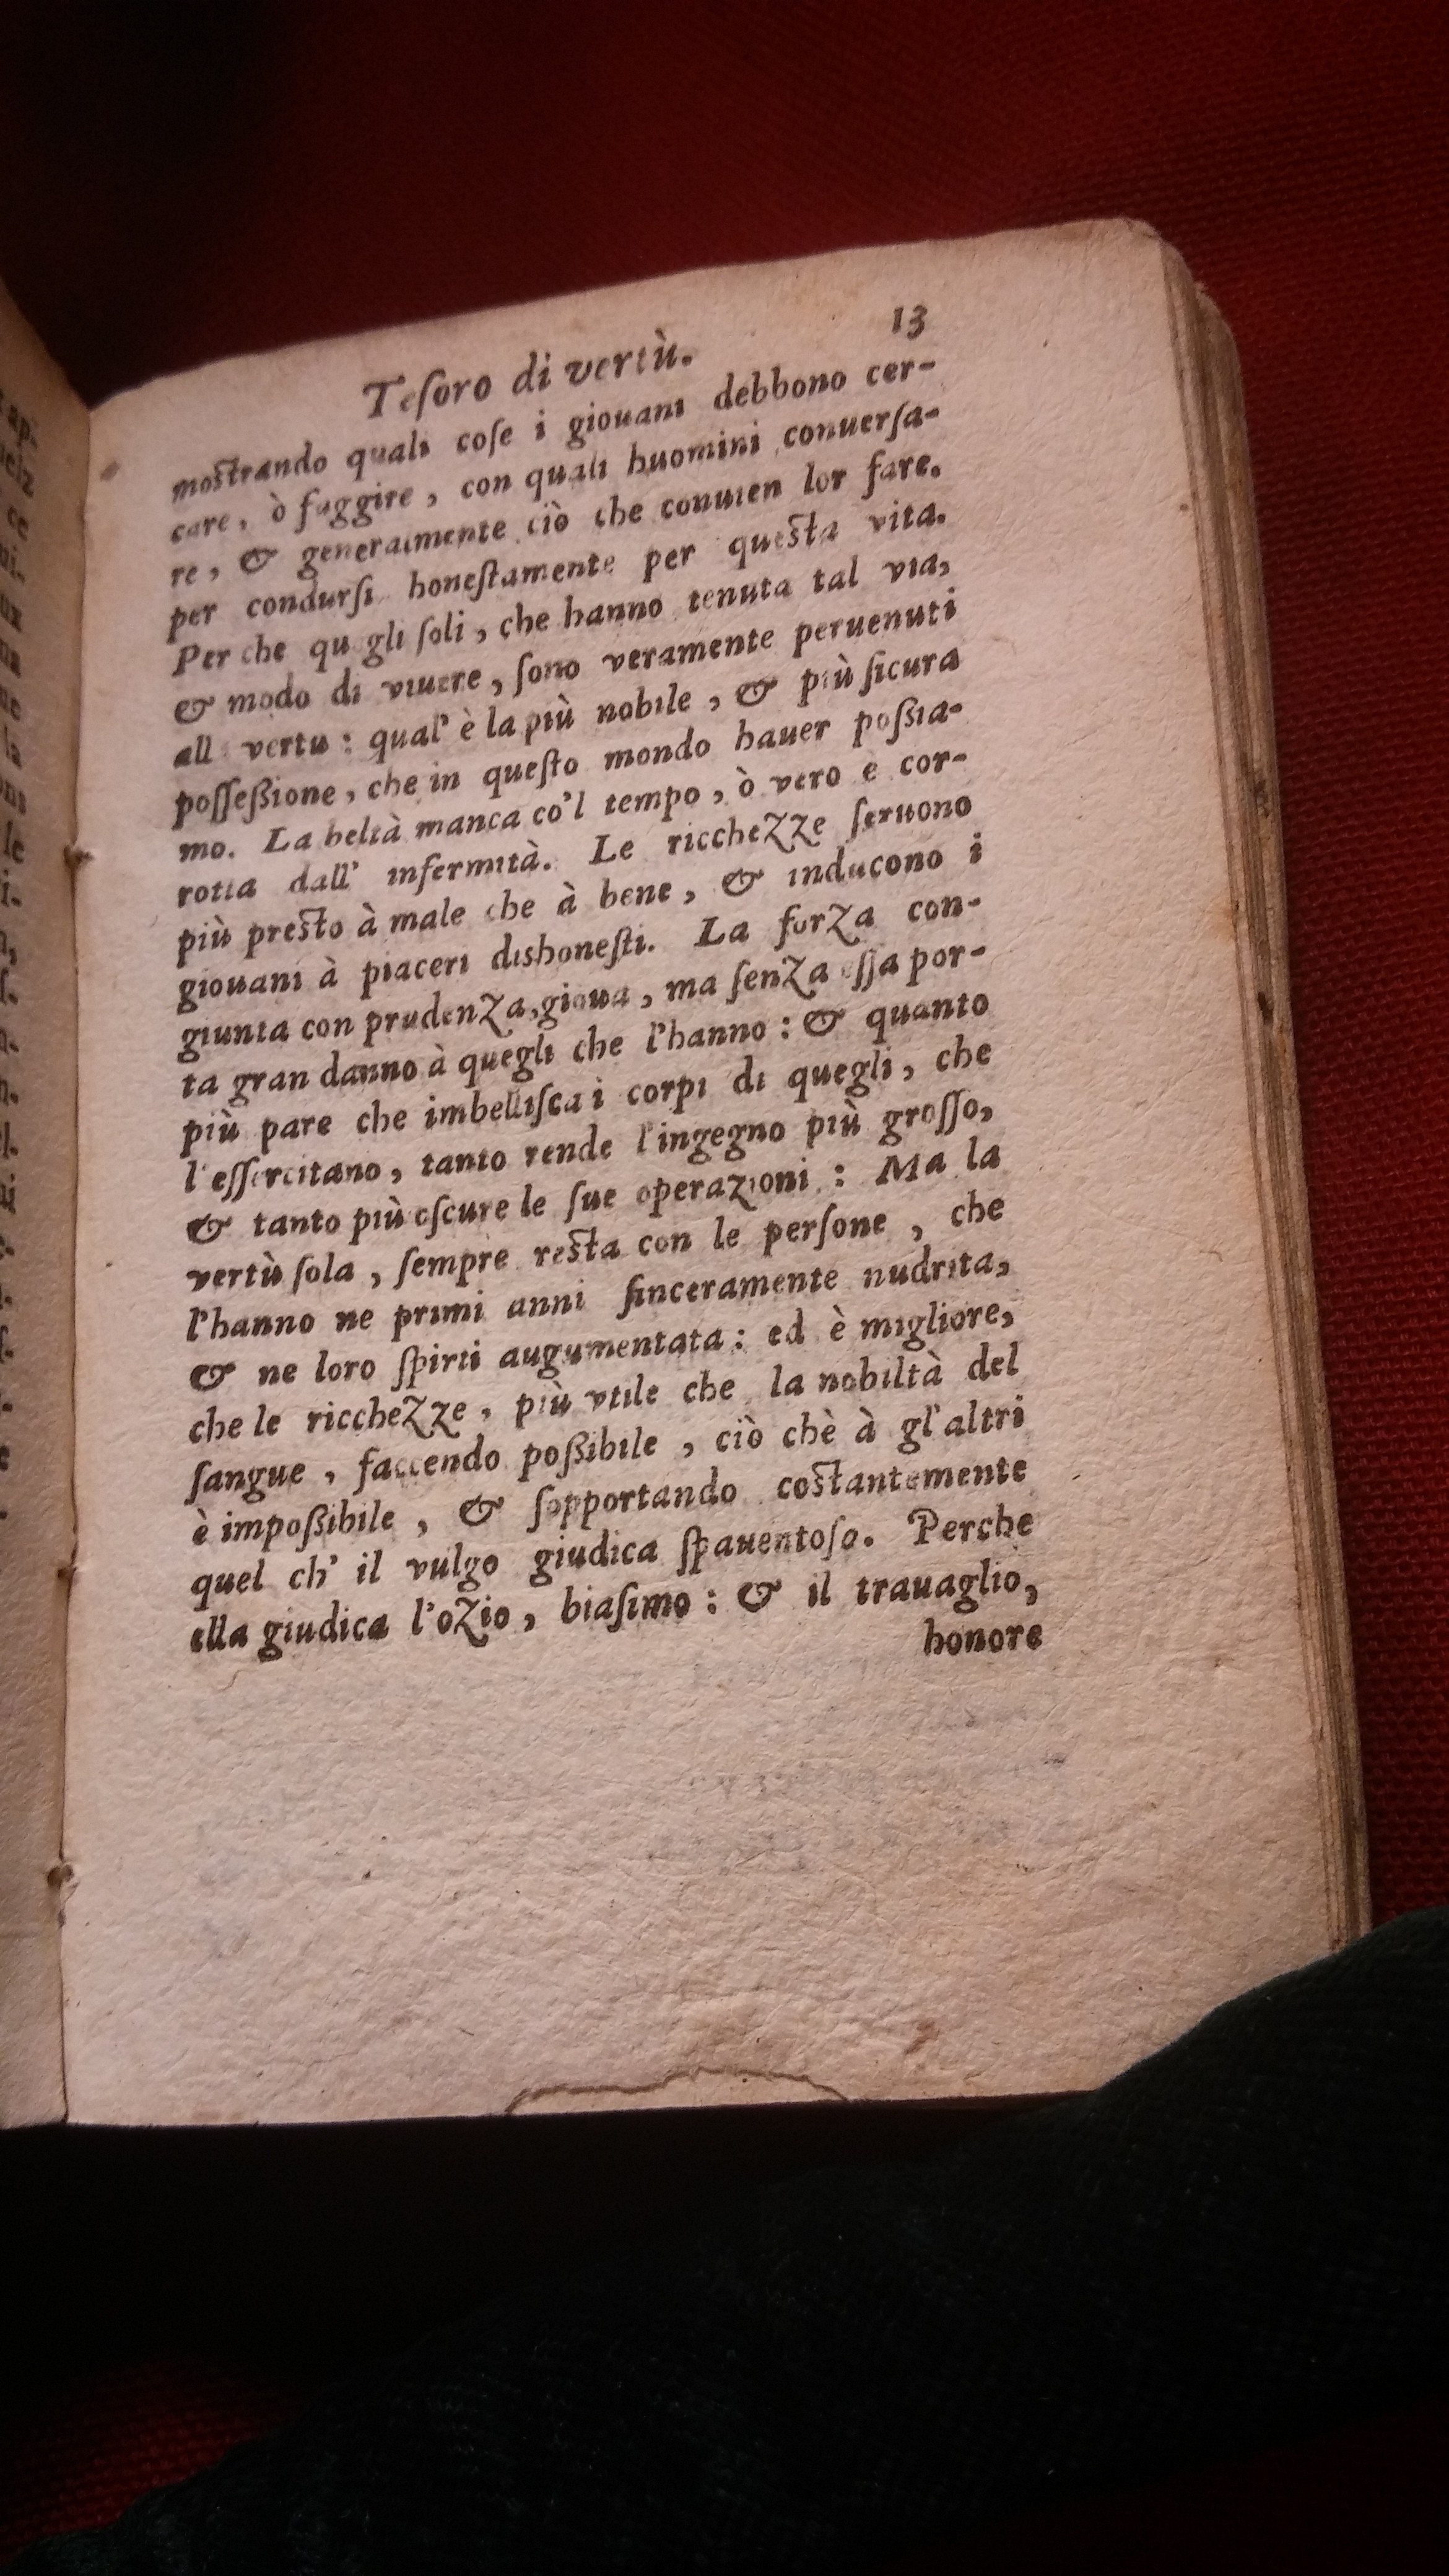 13
Teſoro di vertù.
mostrando quali coſe i giouani debbono cer-
care, ò fuggire, con quali huomini conuerſa-
re, & generalmente ciò che conuien lor fare.
per condurſi honeſtamente per questa vita.
Per che qu gli ſoli, che hanno tenuta tal via,
& modo di viuere, ſono veramente peruenuti
all vertu: qual' è la più nobile, & più ſicura
poſſeßione, che in queſto mondo hauer poßia-
mo. La beltà manca co'l tempo, ò vero è cor-
rotta dall' infermità. Le ricchezze ſeruono
più presto à male che à bene, & inducono i
giouani à piaceri dishoneſti. La forza con-
giunta con prudenza, gioua, ma ſenza eſſa por-
ta gran danno à quegli che l'hanno: & quanto
più pare che imbelliſca i corpi di quegli, che
l'eſſercitano, tanto rende l'ingegno più groſſo,
& tanto più oſcure le ſue operazioni: Ma la
vertù ſola, ſempre resta con le perſone, che
l'hanno ne primi anni ſinceramente nudrita,
& ne loro ſpirti augumentata: ed è migliore,
che le ricchezze, più vtile che la nobiltà del
ſangue, faccendo poßibile, ciò chè à gl'altri
è impoßibile, & ſopportando costantemente
quel ch' il vulgo giudica ſpauentoſo. Perche
ella giudica l'ozio, biaſimo: & il trauaglio,
honore